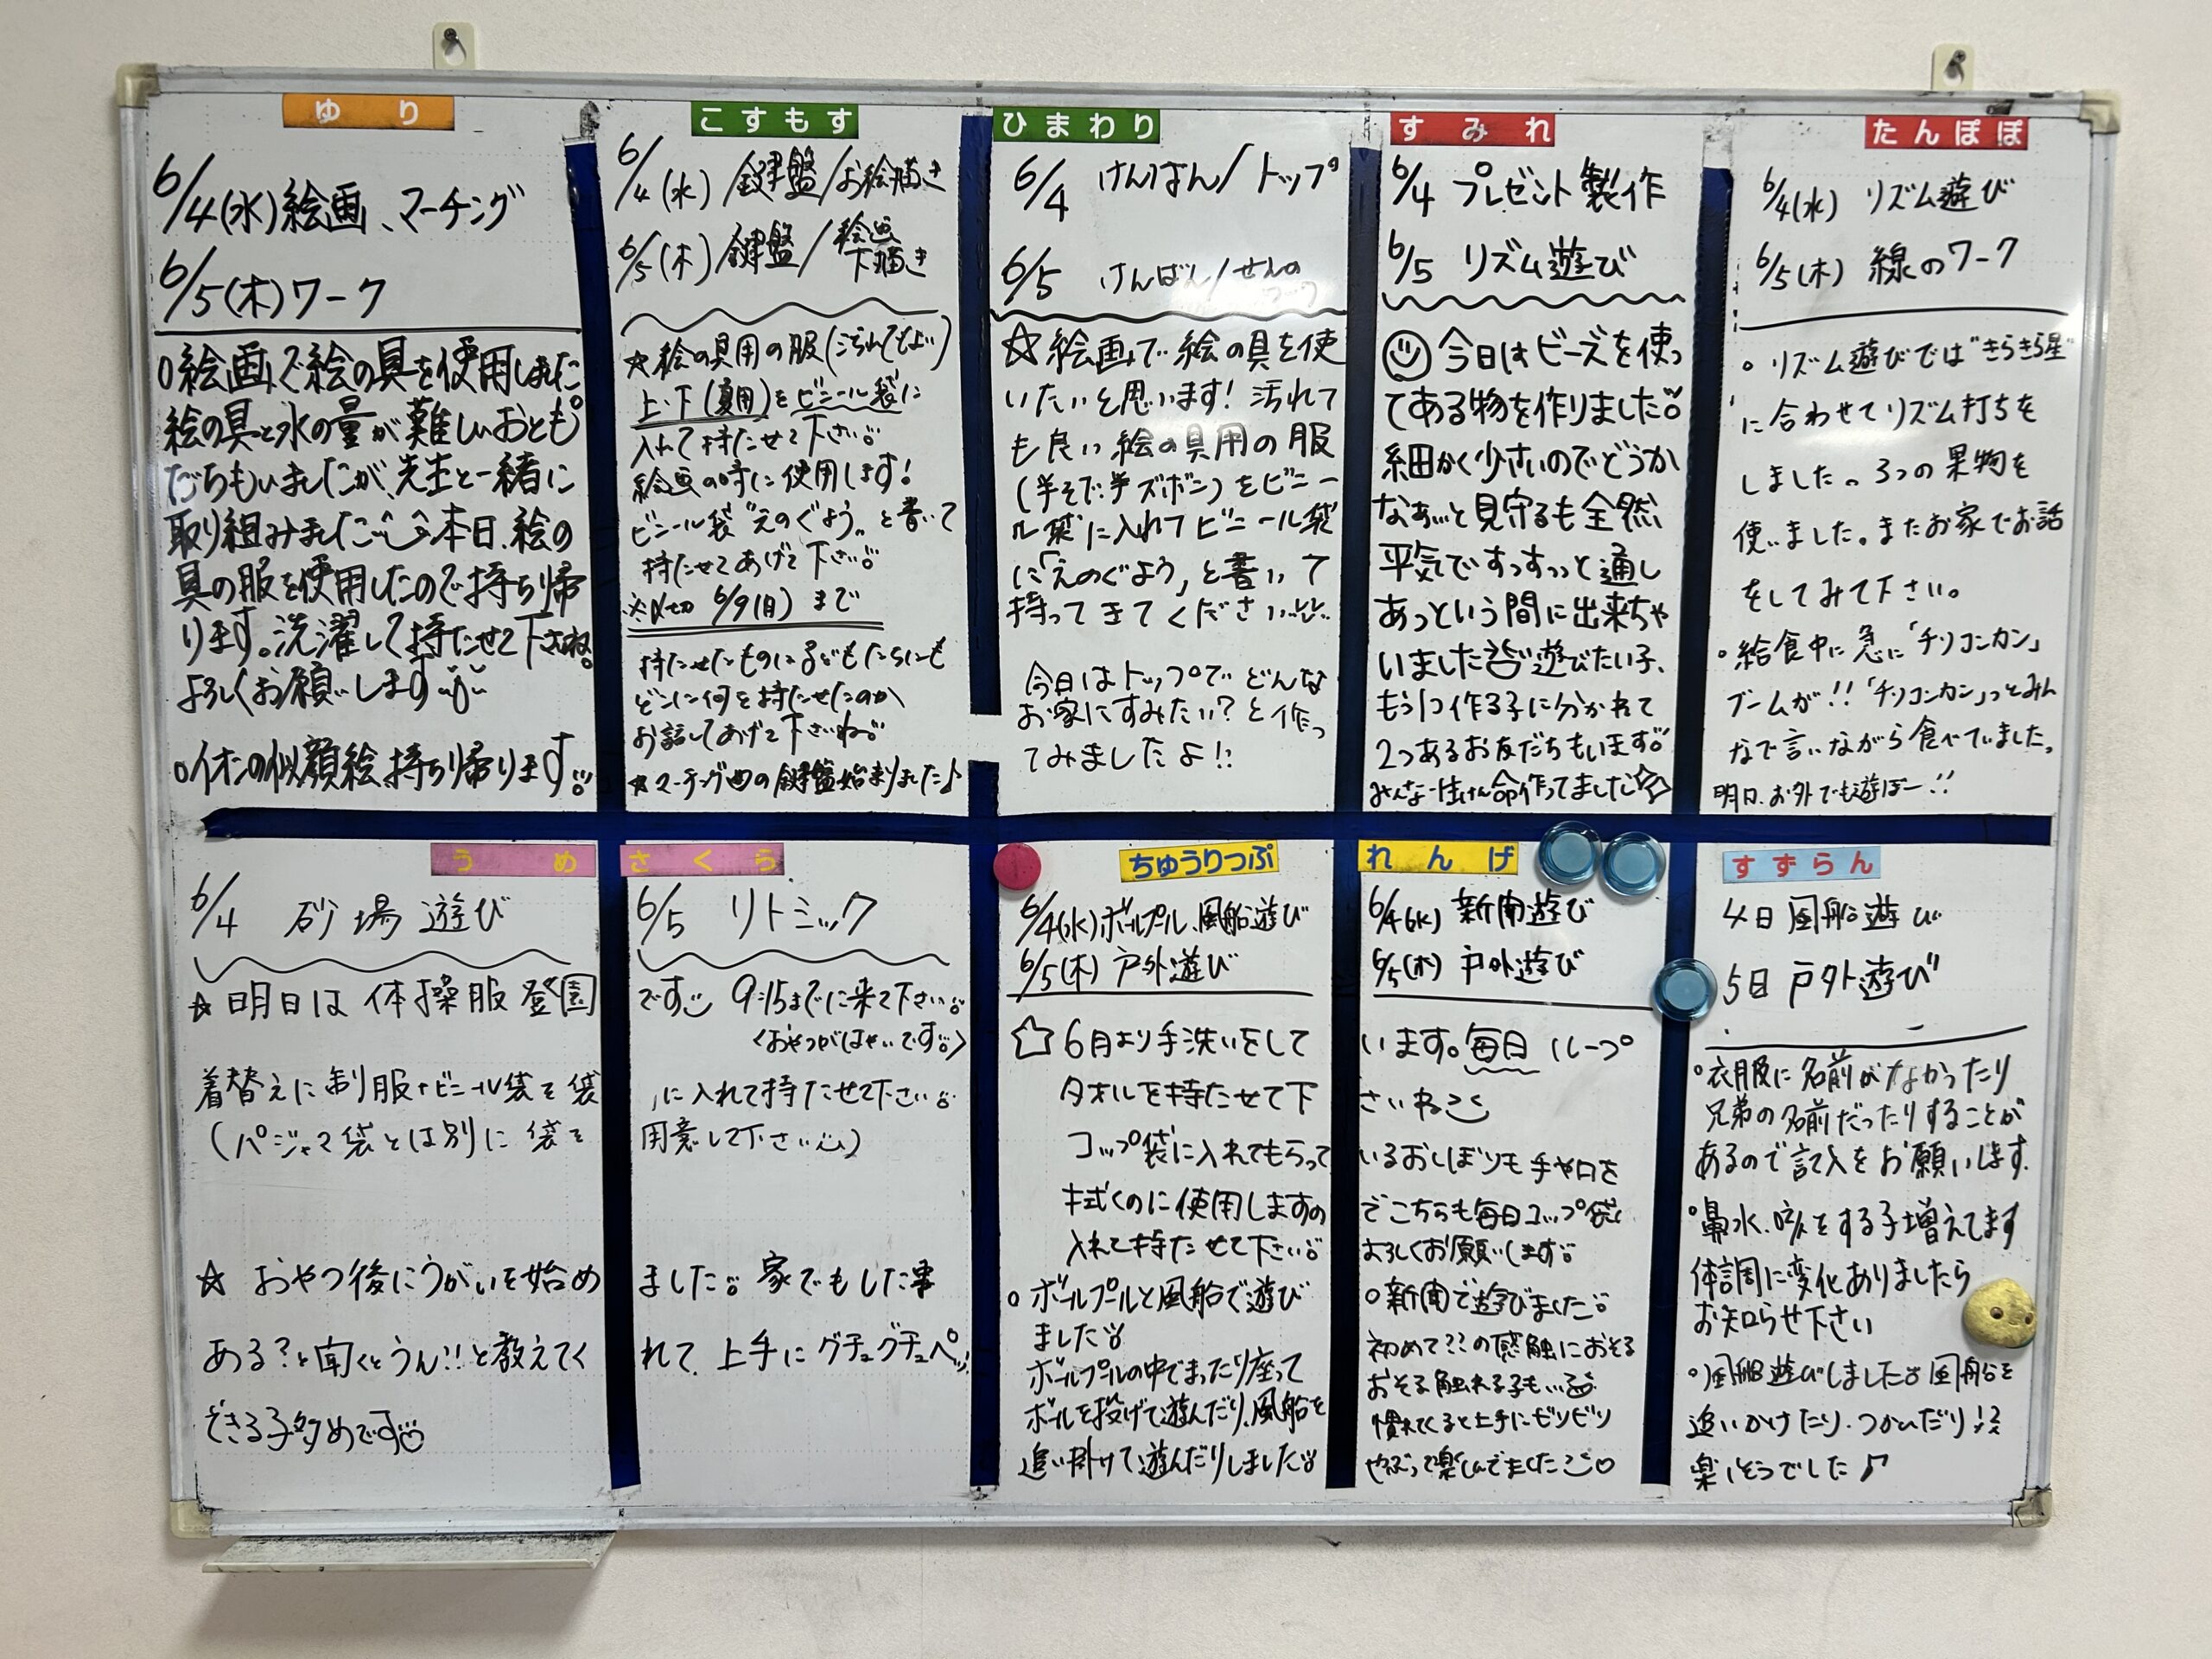 ゆり
6/4(水)絵画、マーチング
6/5(木)ワーク
○絵画で絵の具を使用しました
絵の具と水の量が難しいおとも
だちもいましたが、先生と一緒に
取り組みました 本日、絵の
具の服を使用したので持ち帰
ります。洗濯して持たせて下さいね。
よろしくお願いします
○イオンの似顔絵、持ち帰ります
こすもす
6/4(水) 鍵盤/お絵描き
6/5(木) 鍵盤/絵画下描き
☆絵の具用の服(汚れてもよい)
上・下(夏用)をビニール袋に
入れて持たせて下さい。
絵画の時に使用します!
ビニール袋"えのぐよう"と書いて
持たせてあげて下さい。
※〆切 6/9(月)まで
持たせたものに子どもたちにも
どこに何を持たせたのか
お話してあげて下さいね。
★マーチング曲の鍵盤始まりました♪
ひまわり
6/4 けんばん/トップ
6/5 けんばん/せんのワーク
☆絵画で絵の具を使
いたいと思います!汚れて
も良い絵の具用の服
(半そで半ズボン)をビニー
ル袋に入れてビニール袋
に「えのぐよう」と書いて
持ってきてください
今日はトップでどんな
お家にすみたい?と作っ
てみましたよ!!
すみれ
6/4 プレゼント製作
6/5 リズム遊び
今日はビーズを使っ
てある物を作りました
細かく少さいのでどうか
なぁ…と見守るも全然、
平気ですっすっっと通し
あっという間に出来ちゃ
いました 遊びたい子、
もう1つ作る子に分かれて
2つあるお友だちもいます
みんな一生けん命作ってました☆
たんぽぽ
6/4(水) リズム遊び
6/5(木) 線のワーク
○リズム遊びでは"きらきら星"
に合わせてリズム打ちを
しました。3つの果物を
使いました。またお家でお話
をしてみて下さい。
○給食中に急に「チリコンカン」
ブームが!!「チリコンカン」っとみん
なで言いながら食べていました。
明日、お外でも遊ぼー!!
うめ さくら
6/4 砂場遊び 6/5 リトミック
☆明日は体操服登園です 9:15までに来て下さい。
<おやつがはやいです。>
着替えに制服+ビニール袋を袋に入れて持たせて下さい。
(パジャマ袋とは別に袋を用意して下さい)
☆おやつ後にうがいを始めました。家でもした事
ある?と聞くとうん!!と教えてくれて、上手にグチュグチュペッ!!
できる子多めです
ちゅうりっぷ れんげ
6/4(水)ボールプール、風船遊び
6/5(木)戸外遊び
6/4(水) 新聞遊び
6/5(木) 戸外遊び
☆6月より手洗いをしています。毎日ループ
タオルを持たせて下さいね
コップ袋に入れてもらっているおしぼりも手や口を
拭くのに使用しますのでこちらも毎日コップ袋に
入れて持たせて下さい。よろしくお願いします。
○ボールプールと風船で遊び
ました
ボールプールの中でまったり座って
ボールを投げて遊んだり、風船を
追い掛けて遊んだりしました
○新聞で遊びました。
初めて??の感触におそる
おそる触れる子も…
慣れてくると上手にビリビリ
やぶって楽しんでました♡
すずらん
4日 風船遊び
5日 戸外遊び
○衣服に名前がなかったり
兄弟の名前だったりすることが
あるので記入をお願いします。
○鼻水、咳をする子増えてます
体調に変化ありましたら
お知らせ下さい
○風船遊びしました 風船を
追いかけたり、つかんだり!!
楽しそうでした♪